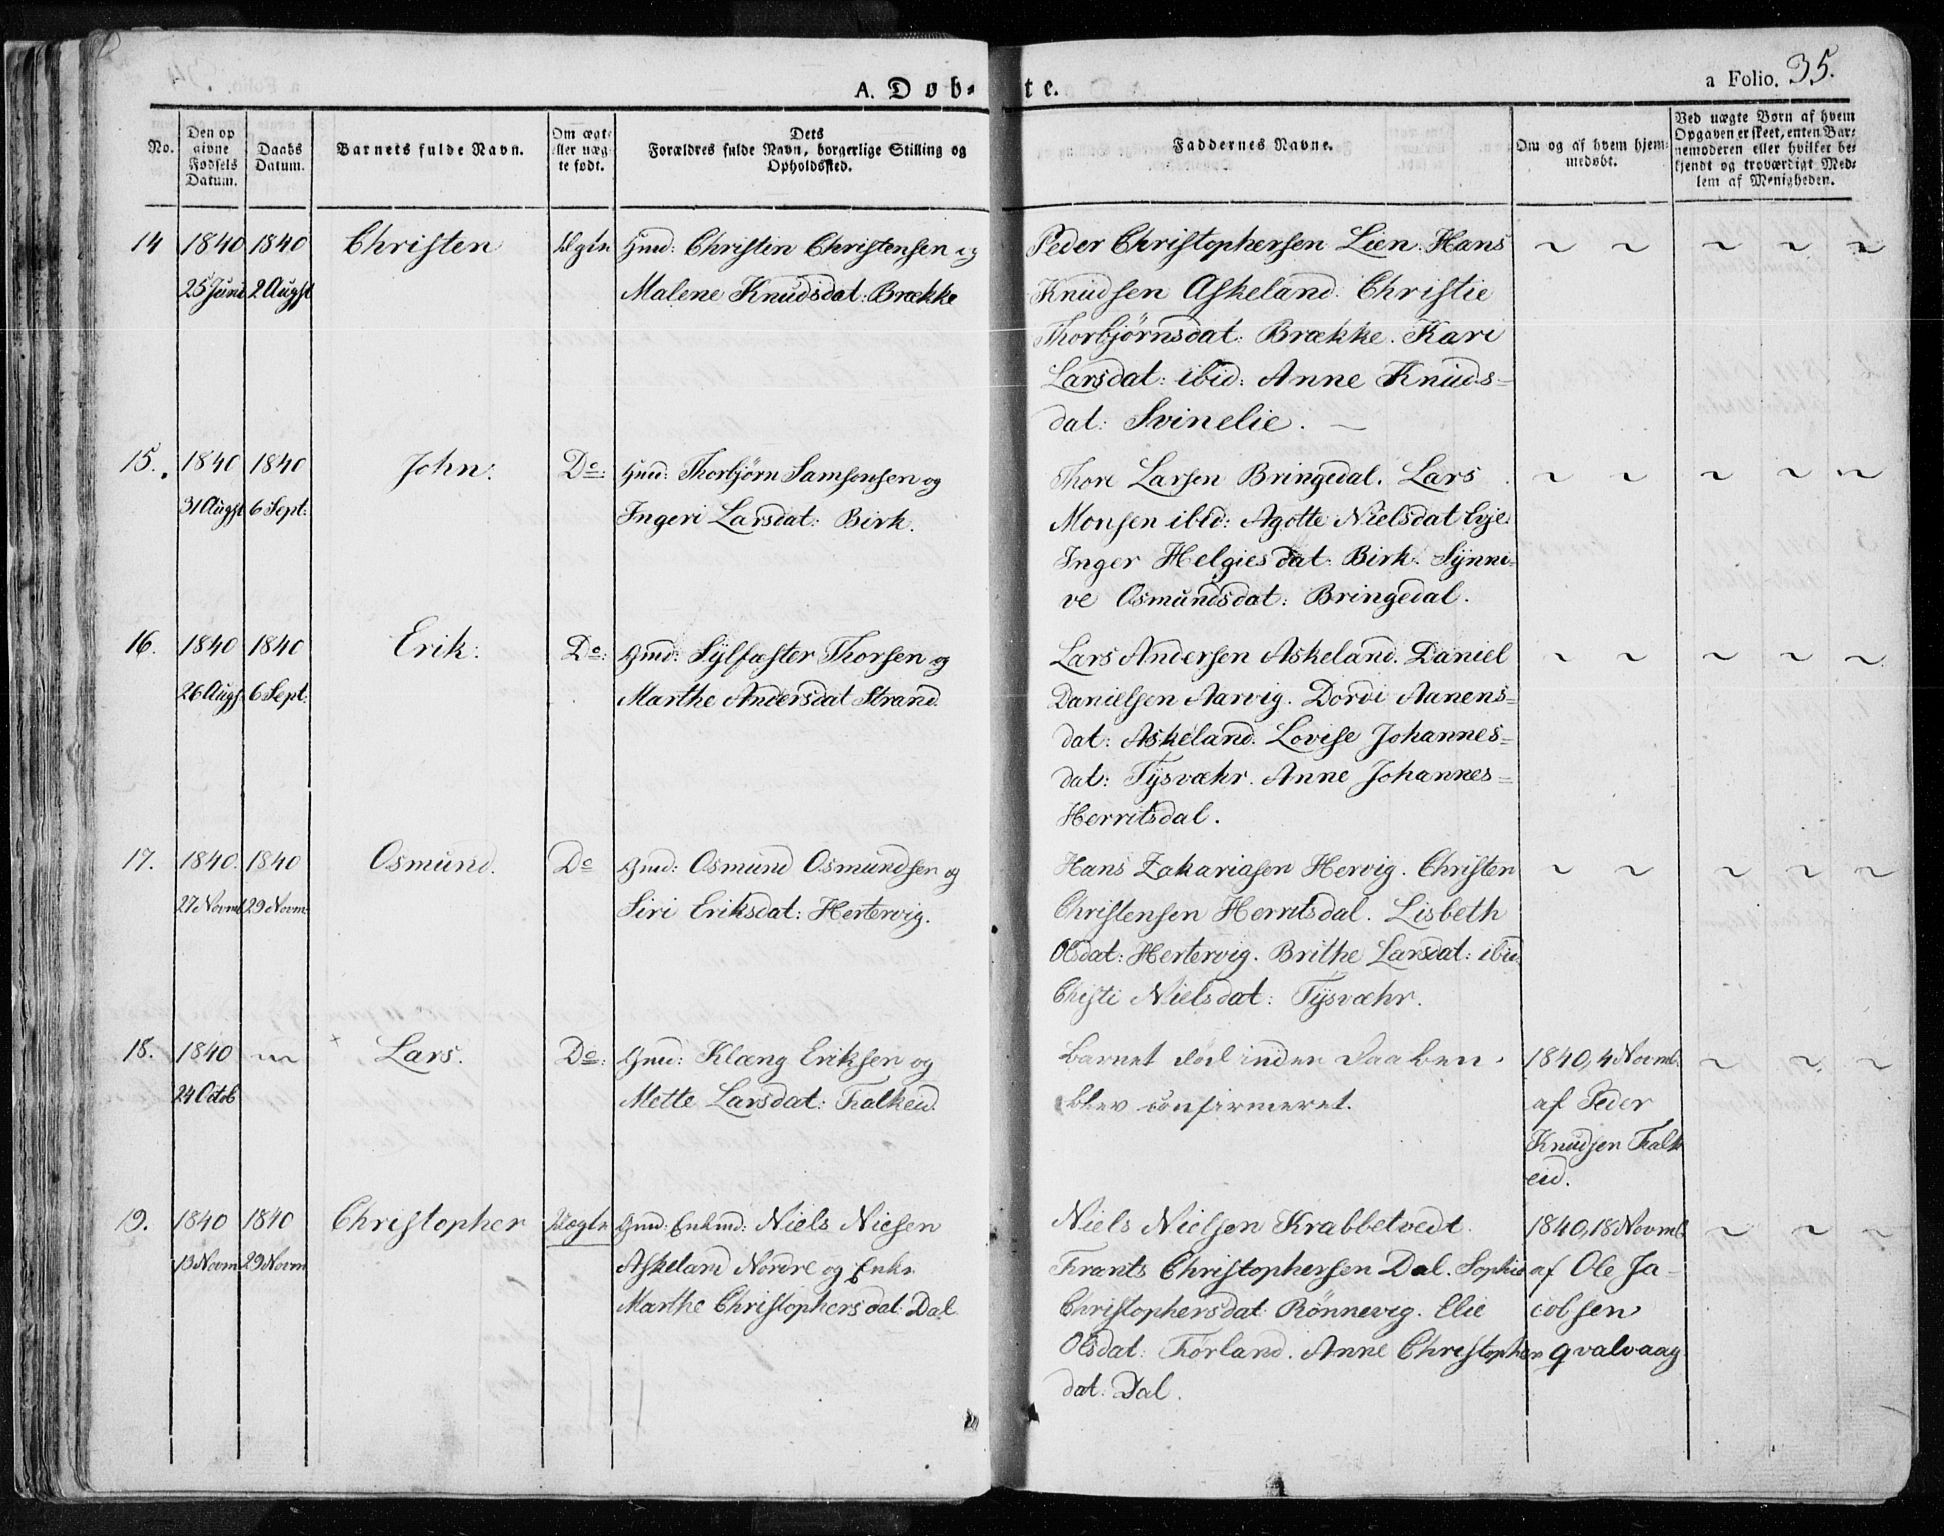 A. Døb- te.
a Folio. 35.
No.
Den op
givne
Fødsels
Datum.
Daabs
Datum.
Barnets fulde Navn.
Om ægte
eller uæg-
te født.
Dets
Forældres fulde Navn, borgerlige Stilling og
Opholdssted.
Faddernes Navne.
Om og af hvem hjem-
medøbt.
Ved uægte Børn af hvem
Opgaven er skeet, enten Bar-
nemoderen eller hvilket be-
kjendt og troværdigt Med-
lem af Menigheden.
14 1840 1840 Christen Gmd: Christen Christensen og
25 Juni 2 Augst Malene Knudsdat: Brække
Peder Christophersen Lien. Hans ~ ~ ~ ~ ~
Knudsen Askeland. Christie
Thorbjørnsdat: Brække. Kari
Larsdat: ibid: Anne Knuds-
dat: Svinelie. —
15. 1840 1840 John. Do: Gmd: Thorbjørn Samsonsen og
31 Augst 6 Sept: Ingeri Larsdat: Birk.
Thore Larsen Bringedal. Lars ~ ~ ~ ~ ~
Monsen ibid: Agotte Nielsdat Eye
Inger Helgiesdat: Birk. Synni-
ve Osmundsdat: Bringedal.
16. 1840 1840 Erik: Do: Gmd: Sylfæster Thorsen og
26 Augst 6 Sept: Marthe Andersdat Strand.
Lars Andersen Askeland. Daniel ~ ~ ~ ~ ~
Danielsen Aarvig. Dordi Aanens-
dat: Askeland. Lovise Johannes-
dat: Tysvæhr. Anne Johannes-
Herritsdal.
17. 1840. 1840 Osmund. Do Gmd: Osmund Osmundsen og
27 Novmb 29 Novm: Siri Eriksdat: Hertervig.
Hans Zakariasen Hervig. Christen ~ ~ ~ ~ ~
Christensen Herritsdal. Lisbeth
Olsdat: Hertervig. Brithe Larsdat: ibid.
Christi Nielsdat: Tysvæhr.
18. 1840 × Lars. Do: Gmd: Klæng Eriksen og
24 Octob Mette Larsdat: Falkeid.
Barnet død inden Daaben
blev confirmeret.
1840, 4 Novmb. ~ ~ ~
af Peder
Knudsen Falk
eid.
19. 1840 1840 Christopher Uægte Gmd: Enkmd: Niels Nielsen
13 Novm 29 Novm Askeland Nordre og Enke
Marthe Christophersdat: Dal
Niels Nielsen Krabbetvedt.
Frants Christophersen Dal. Sophie
Christophersdat: Rønnevig. Elie
Olsdat: Førland. Anne Christophers
dat: Dal.
1840, 18 Novmb ~ ~ ~
af Ole Ja-
cobsen
Qvalvaag